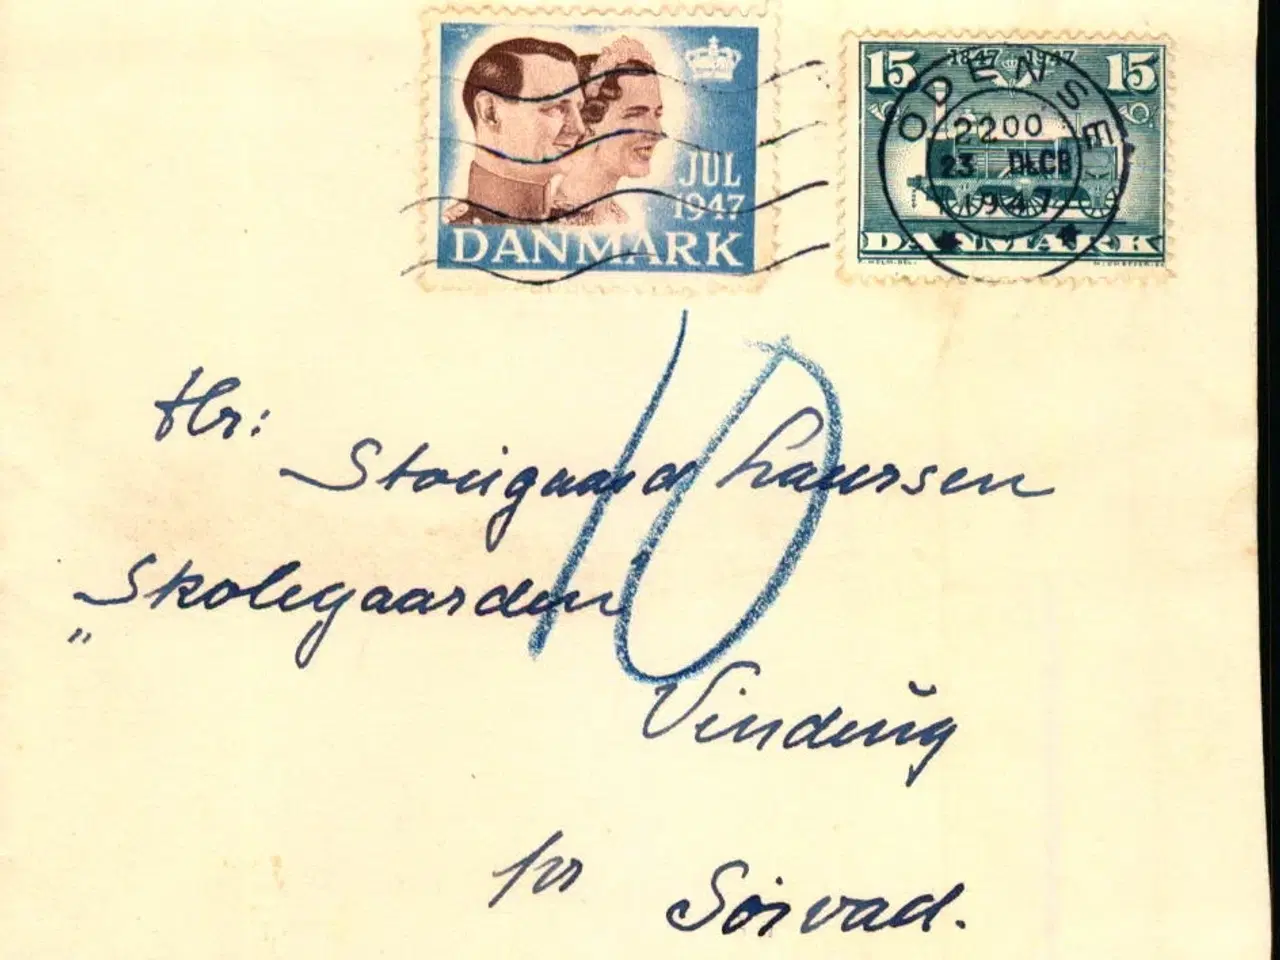 JUL
1947
DANMARK
15 1847 1947 15
ODENSE
2200
23 DECB
1947
DANMARK
10
Hr:
Laursen
„Skolegaarden"
Vinding
pr Sørvad.